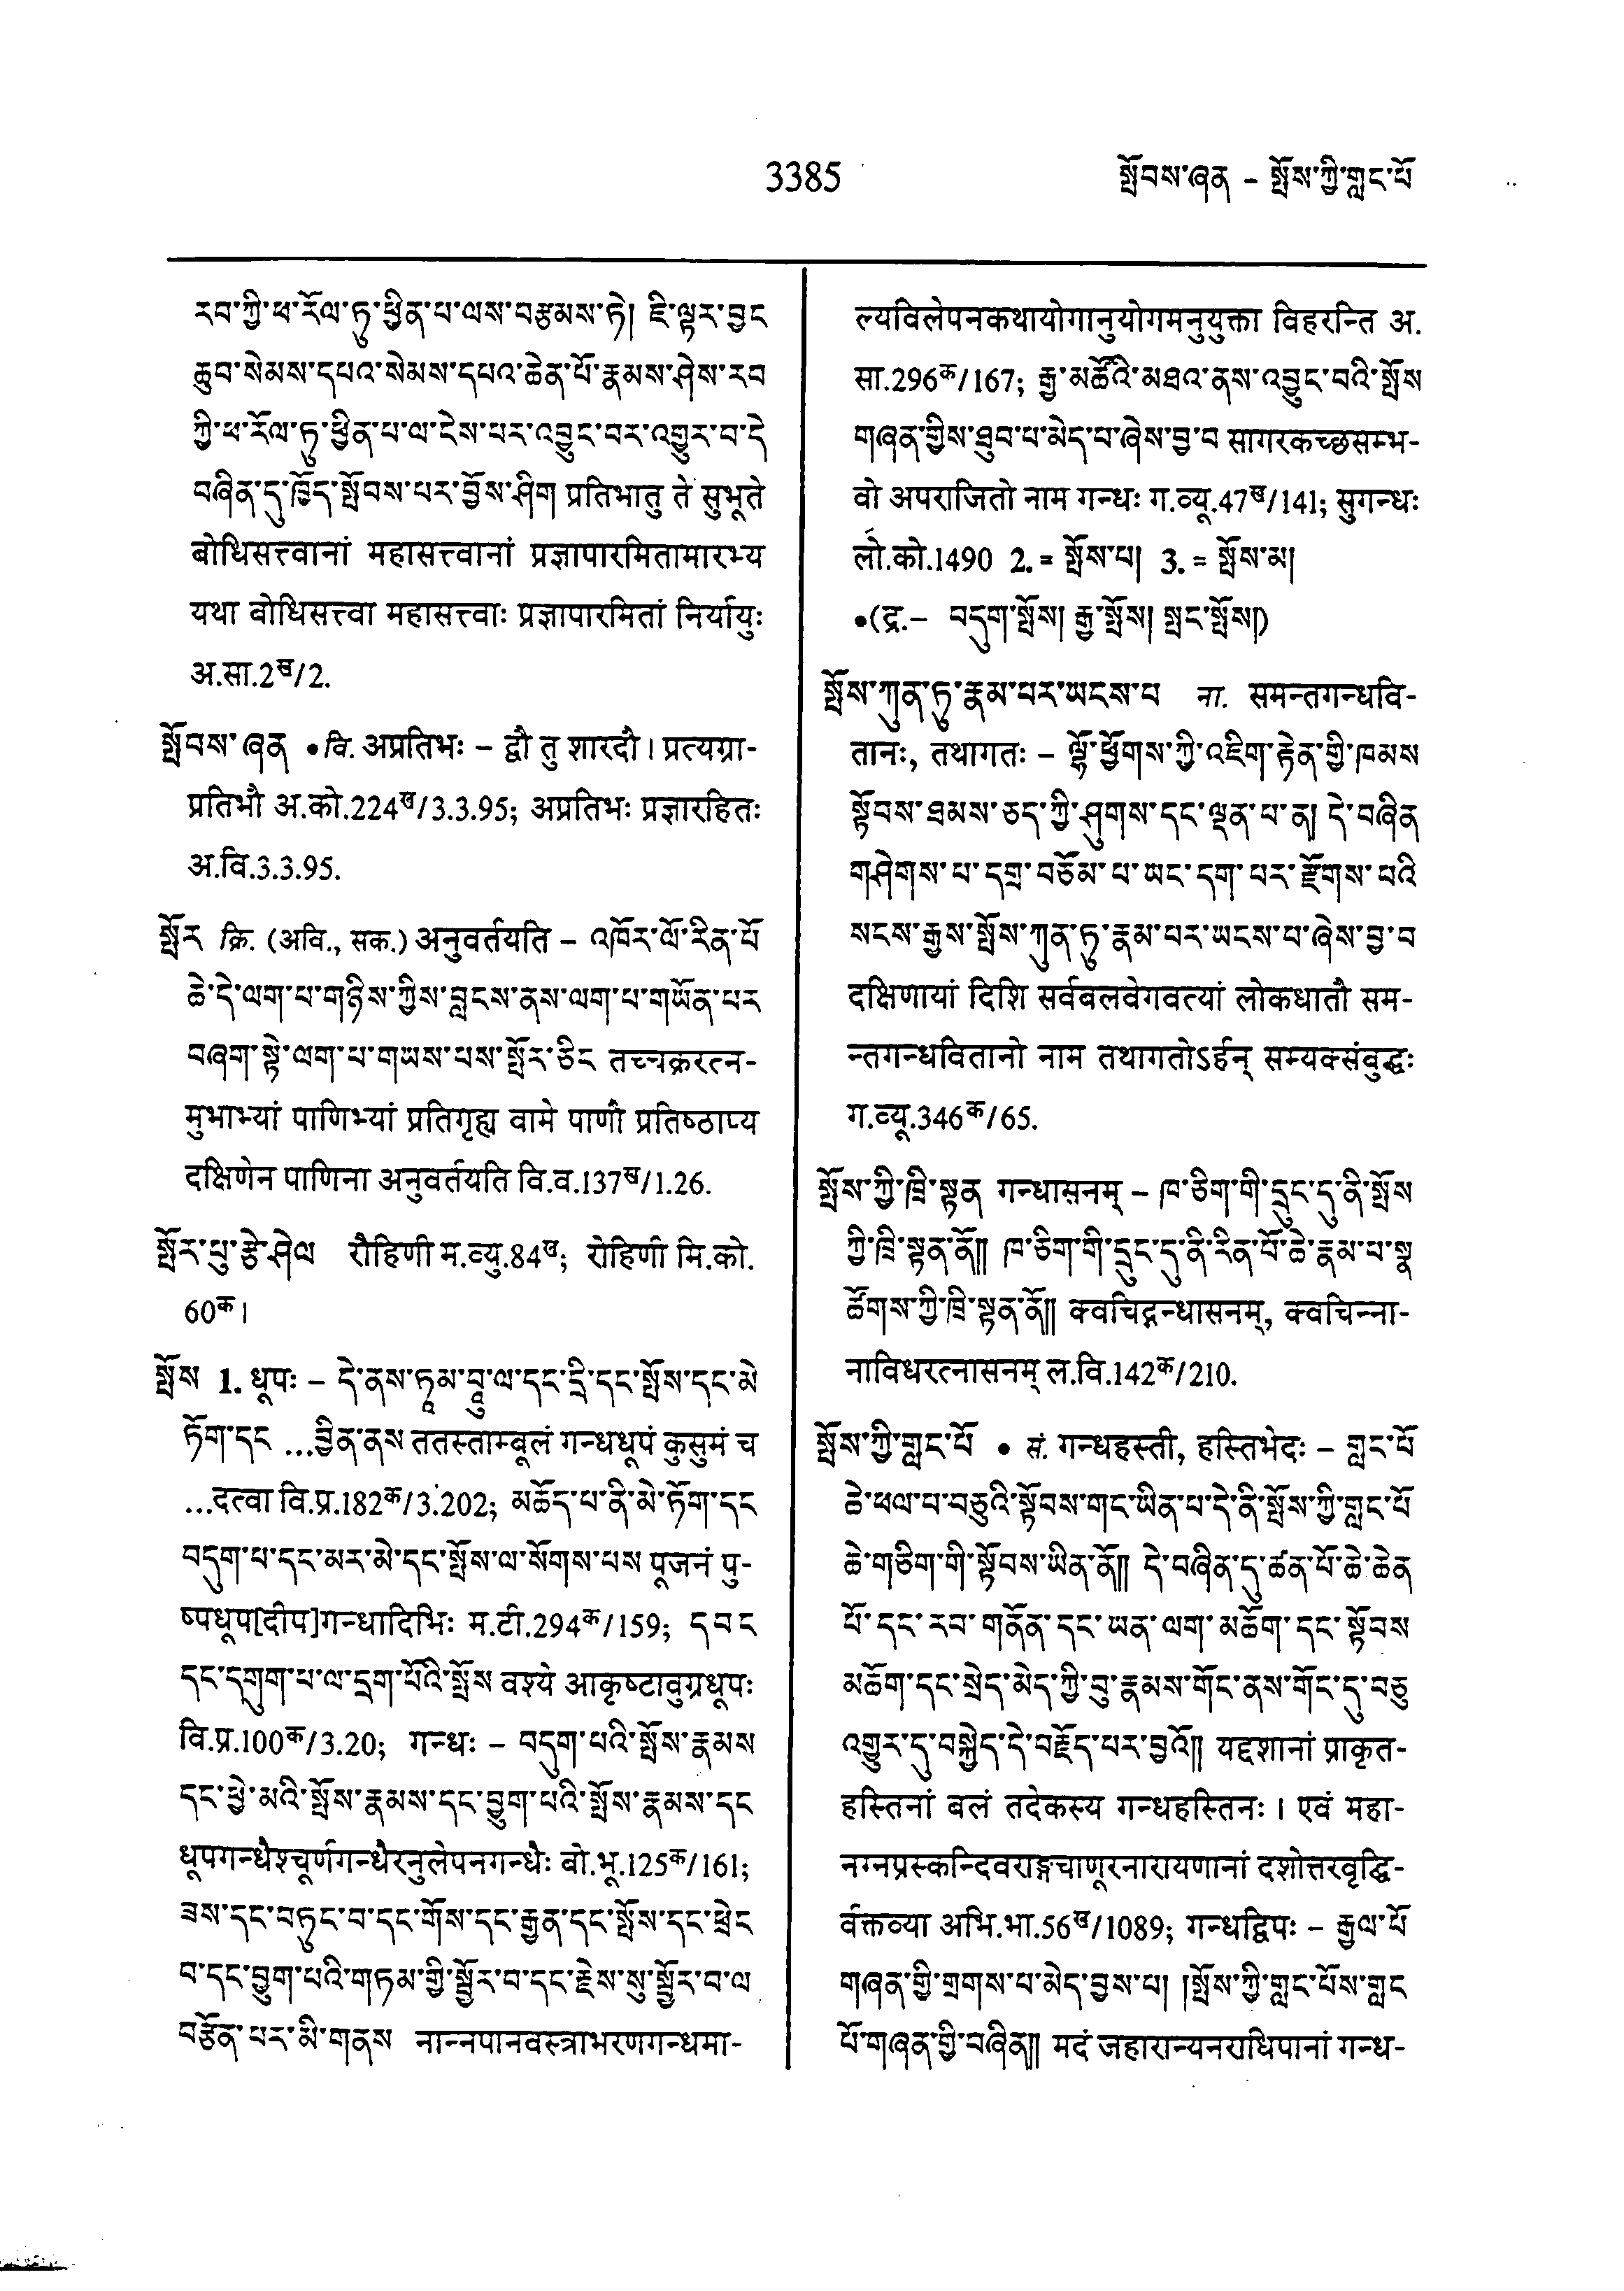 3385
སྤོབས་ཞན – སྤོས་ཀྱི་གླང་པོ
རབ་ཀྱི་ཕ་རོལ་ཏུ་ཕྱིན་པ་ལས་བརྩམས་ཏེ། ཇི་ལྟར་བྱང
ཆུབ་སེམས་དཔའ་སེམས་དཔའ་ཆེན་པོ་རྣམས་ཤེས་རབ
ཀྱི་ཕ་རོལ་ཏུ་ཕྱིན་པ་ལ་ངེས་པར་འབྱུང་བར་འགྱུར་བ་དེ
བཞིན་དུ་ཁྱོད་སྤོབས་པར་བྱོས་ཤིག प्रतिभातु ते सुभूते
बोधिसत्त्वानां महासत्त्वानां प्रज्ञापारमितामारभ्य
यथा बोधिसत्त्वा महासत्त्वाः प्रज्ञापारमितां निर्यायुः
अ.सा.2ख/2.
སྤོབས་ཞན •वि. अप्रतिभः – द्वौ तु शारदौ। प्रत्यग्रा-
प्रतिभौ अ.को.224ख/3.3.95; अप्रतिभः प्रज्ञारहितः
अ.वि.3.3.95.
སྤོར क्रि. (अवि., सक.) अनुवर्तयति – འཁོར་ལོ་རིན་པོ
ཆེ་དེ་ལག་པ་གཉིས་ཀྱིས་བླངས་ནས་ལག་པ་གཡོན་པར
བཞག་སྟེ་ལག་པ་གཡས་པས་སྤོར་ཅིང तच्चक्ररत्न-
मुभाभ्यां पाणिभ्यां प्रतिगृह्य वामे पाणौ प्रतिष्ठाप्य
दक्षिणेन पाणिना अनुवर्तयति वि.व.137ख/1.26.
སྤོར་བུ་རྩེ་ཤེལ रौहिणी म.व्यु.84ख; रोहिणी मि.को.
60क।
སྤོས 1. धूपः – དེ་ནས་ཏཱམ་བཱུ་ལ་དང་དྲི་དང་སྤོས་དང་མེ
ཏོག་དང ...བྱིན་ནས ततस्ताम्बूलं गन्धधूपं कुसुमं च
...दत्वा वि.प्र.182क/3.202; མཆོད་པ་ནི་མེ་ཏོག་དང
བདུག་པ་དང་མར་མེ་དང་སྤོས་ལ་སོགས་པས पूजनं पु-
ष्पधूप[दीप]गन्धादिभिः म.टी.294क/159; དབང
དང་དགུག་པ་ལ་དྲག་པོའི་སྤོས वश्ये आकृष्टावुग्रधूपः
वि.प्र.100क/3.20; गन्धः – བདུག་པའི་སྤོས་རྣམས
དང་ཕྱེ་མའི་སྤོས་རྣམས་དང་བྱུག་པའི་སྤོས་རྣམས་དང
धूपगन्धैश्चूर्णगन्धैरनुलेपनगन्धैः बो.भू.125क/161;
ཟས་དང་བཏུང་བ་དང་གོས་དང་རྒྱན་དང་སྤོས་དང་ཕྲེང
བ་དང་བྱུག་པའི་གཏམ་གྱི་སྦྱོར་བ་དང་རྗེས་སུ་སྦྱོར་བ་ལ
བརྩོན་པར་མི་གནས नान्नपानवस्त्राभरणगन्धमा-
ल्यविलेपनकथायोगानुयोगमनुयुक्ता विहरन्ति अ.
सा.296क/167; རྒྱ་མཚོའི་མཐའ་ནས་འབྱུང་བའི་སྤོས
གཞན་གྱིས་ཐུབ་པ་མེད་པ་ཞེས་བྱ་བ सागरकच्छसम्भ-
वो अपराजितो नाम गन्धः ग.व्यू.47ख/141; सुगन्धः
लो.को.1490 2. = སྤོས་པ། 3. = སྤོས་མ།
•(द्र.– བདུག་སྤོས། རྒྱ་སྤོས། སྤང་སྤོས།)
སྤོས་ཀུན་ཏུ་རྣམ་པར་ཡངས་པ ना. समन्तगन्धवि-
तानः, तथागतः – ལྷོ་ཕྱོགས་ཀྱི་འཇིག་རྟེན་གྱི་ཁམས
སྟོབས་ཐམས་ཅད་ཀྱི་ཤུགས་དང་ལྡན་པ་ན། དེ་བཞིན
གཤེགས་པ་དགྲ་བཅོམ་པ་ཡང་དག་པར་རྫོགས་པའི
སངས་རྒྱས་སྤོས་ཀུན་ཏུ་རྣམ་པར་ཡངས་པ་ཞེས་བྱ་བ
दक्षिणायां दिशि सर्वबलवेगवत्यां लोकधातौ सम-
न्तगन्धवितानो नाम तथागतोऽर्हन् सम्यक्संबुद्धः
ग.व्यू.346क/65.
སྤོས་ཀྱི་ཁྲི་སྟན गन्धासनम् – ཁ་ཅིག་གི་དྲུང་དུ་ནི་སྤོས
ཀྱི་ཁྲི་སྟན་ནོ།། ཁ་ཅིག་གི་དྲུང་དུ་ནི་རིན་པོ་ཆེ་རྣམ་པ་སྣ
ཚོགས་ཀྱི་ཁྲི་སྟན་ནོ།། क्वचिद्गन्धासनम्, क्वचिन्ना-
नाविधरत्नासनम् ल.वि.142क/210.
སྤོས་ཀྱི་གླང་པོ • सं. गन्धहस्ती, हस्तिभेदः – གླང་པོ
ཆེ་ཕལ་པ་བཅུའི་སྟོབས་གང་ཡིན་པ་དེ་ནི་སྤོས་ཀྱི་གླང་པོ
ཆེ་གཅིག་གི་སྟོབས་ཡིན་ནོ།། དེ་བཞིན་དུ་ཚན་པོ་ཆེ་ཆེན
པོ་དང་རབ་གནོན་དང་ཡན་ལག་མཆོག་དང་སྟོབས
མཆོག་དང་སྲེད་མེད་ཀྱི་བུ་རྣམས་གོང་ནས་གོང་དུ་བཅུ
འགྱུར་དུ་བསྐྱེད་དེ་བརྗོད་པར་བྱའོ།། यद्दशानां प्राकृत-
हस्तिनां बलं तदेकस्य गन्धहस्तिनः। एवं महा-
नग्नप्रस्कन्दिवराङ्गचाणूरनारायणानां दशोत्तरवृद्धि-
र्वक्तव्या अभि.भा.56ख/1089; गन्धद्विपः – རྒྱལ་པོ
གཞན་གྱི་གྲགས་པ་མེད་བྱས་པ། །སྤོས་ཀྱི་གླང་པོས་གླང
པོ་གཞན་གྱི་བཞིན།། मदं जहारान्यनराधिपानां गन्ध-